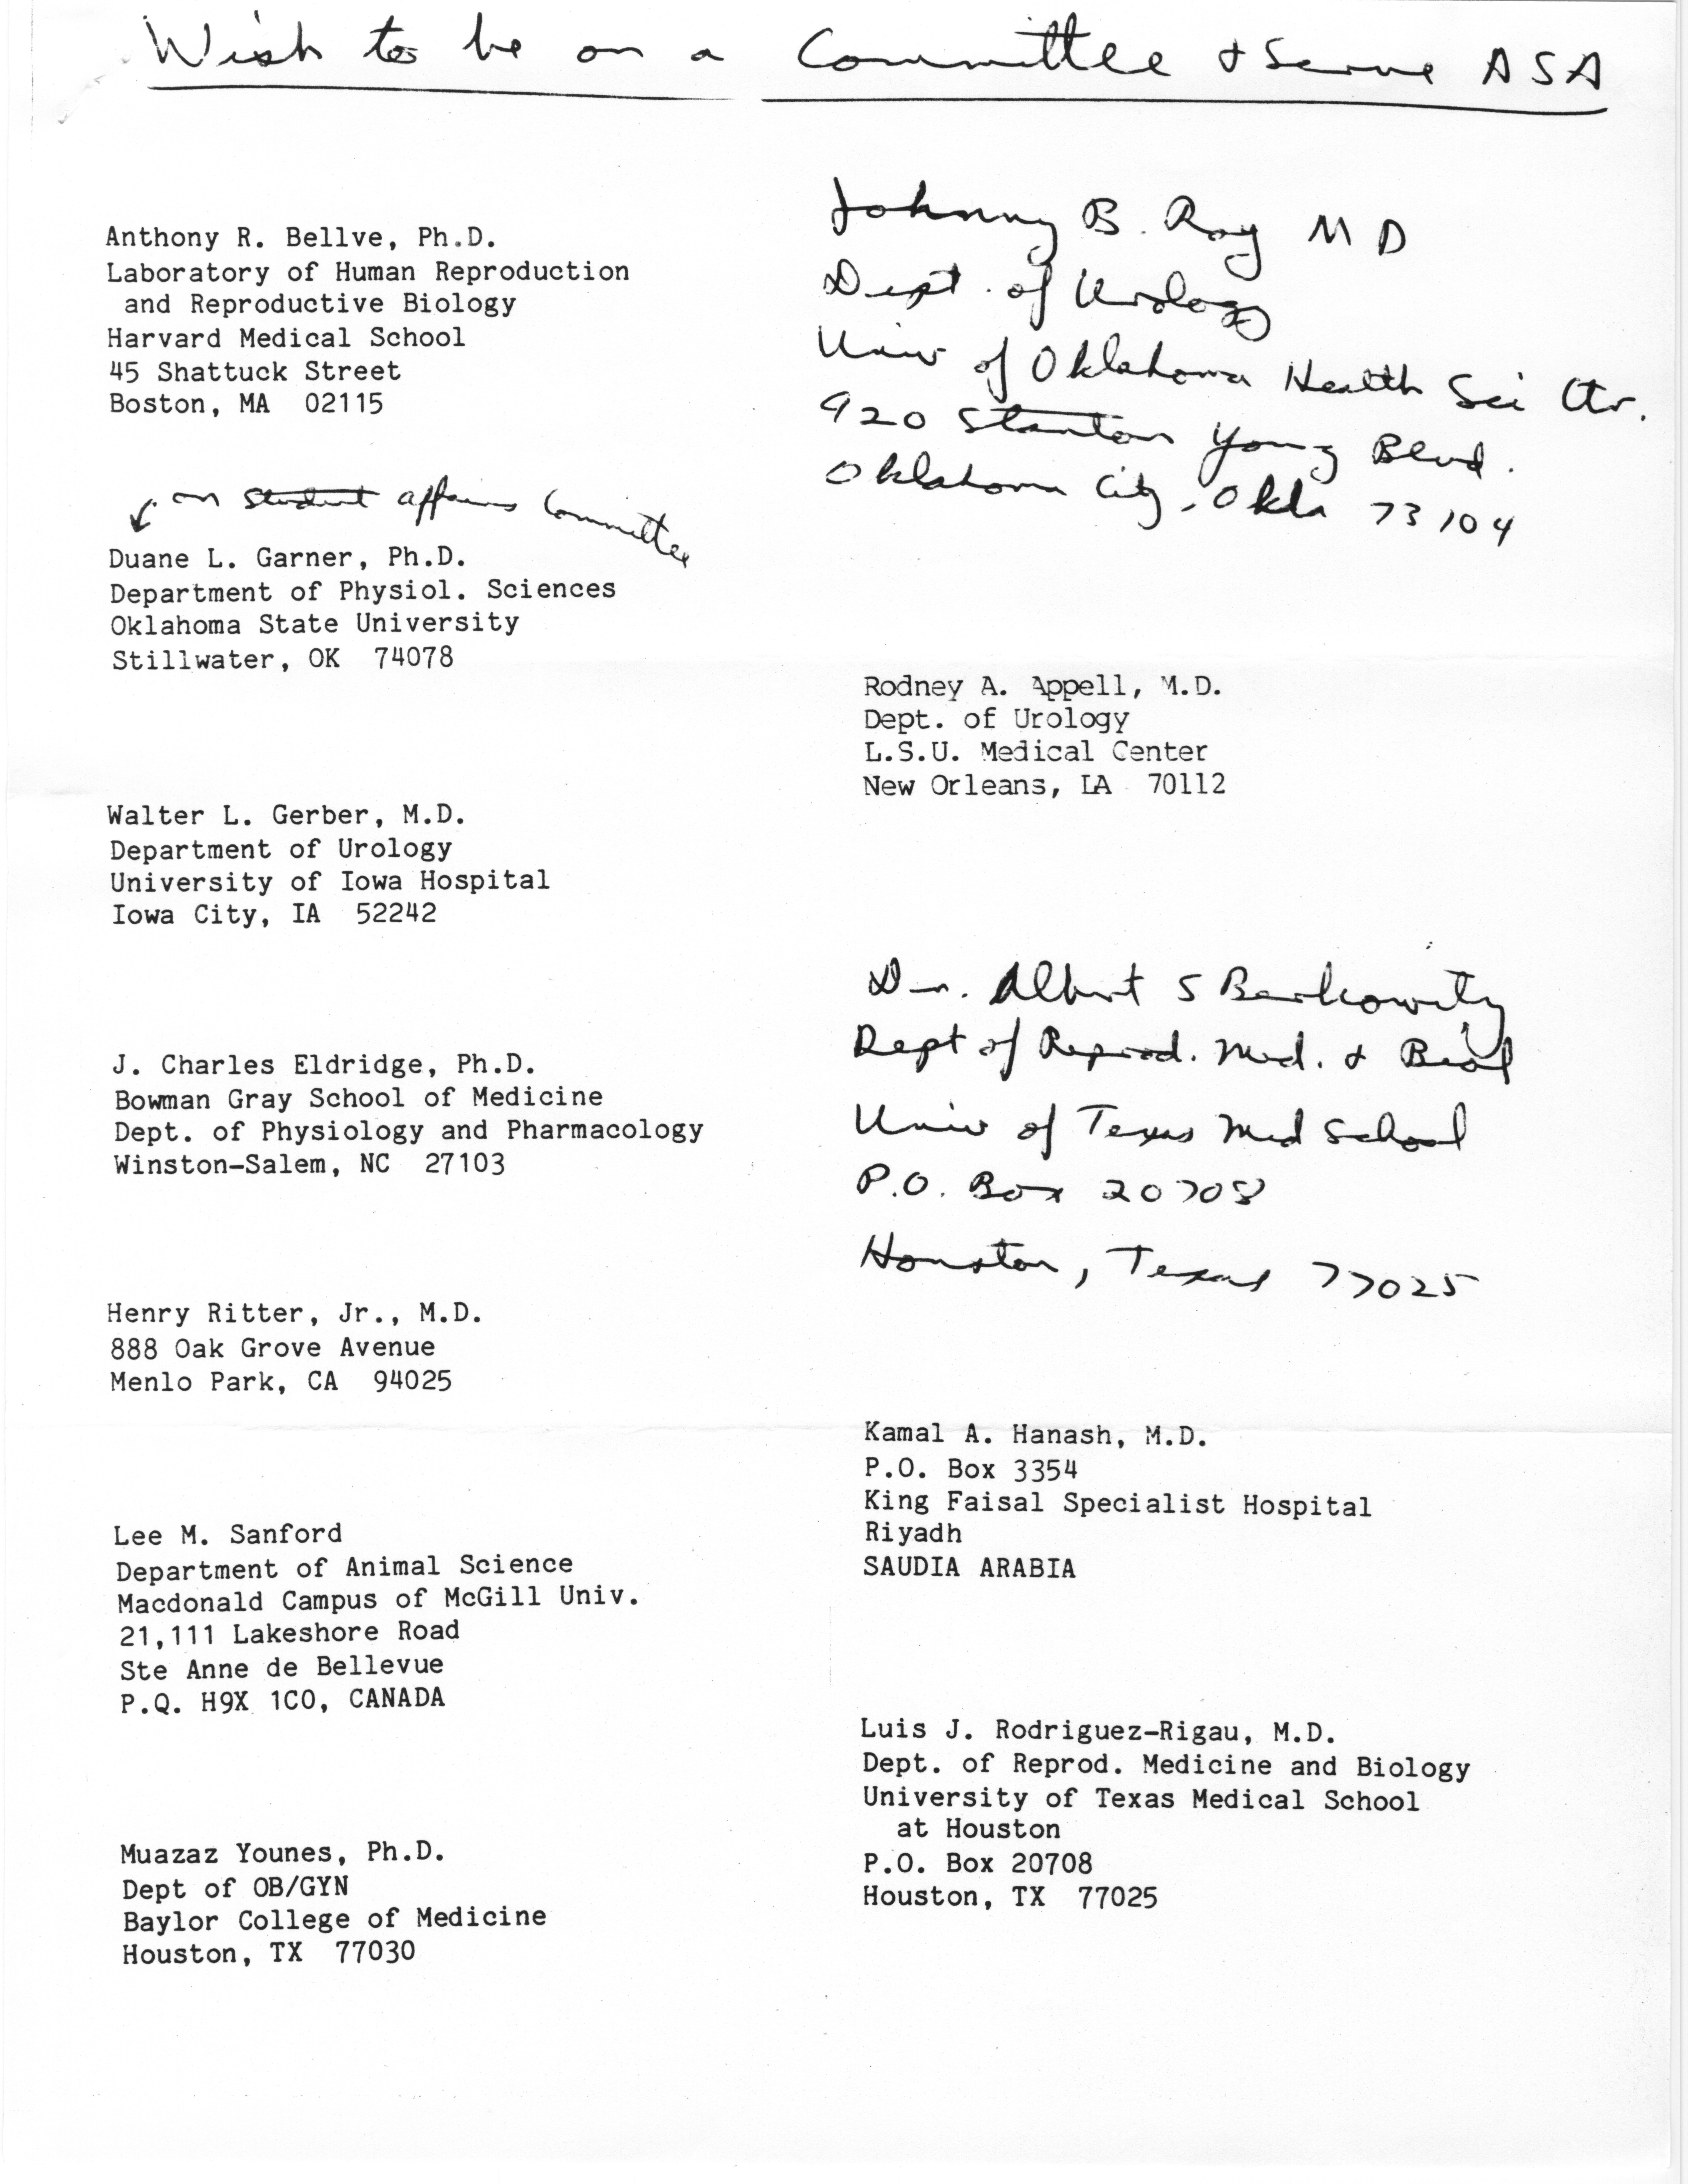 Wish to be on a Committee & Serve ASA
Anthony R. Bellve, Ph.D.
Laboratory of Human Reproduction
and Reproductive Biology
Harvard Medical School
45 Shattuck Street
Boston, MA 02115
on student affairs Committee
Duane L. Garner, Ph.D.
Department of Physiol. Sciences
Oklahoma State University
Stillwater, OK 74078
Walter L. Gerber, M.D.
Department of Urology
University of Iowa Hospital
Iowa City, IA 52242
J. Charles Eldridge, Ph.D.
Bowman Gray School of Medicine
Dept. of Physiology and Pharmacology
Winston-Salem, NC 27103
Henry Ritter, Jr., M.D.
888 Oak Grove Avenue
Menlo Park, CA 94025
Lee M. Sanford
Department of Animal Science
Macdonald Campus of McGill Univ.
21,111 Lakeshore Road
Ste Anne de Bellevue
P.Q. H9X 1C0, CANADA
Muazaz Younes, Ph.D.
Dept of OB/GYN
Baylor College of Medicine
Houston, TX 77030
Johnny B. Roy MD
Dept. of Urology
Univ of Oklahoma Health Sci Ctr.
920 Stanton Young Blvd.
Oklahoma City, Okla 73104
Rodney A. Appell, M.D.
Dept. of Urology
L.S.U. Medical Center
New Orleans, LA 70112
Dr. Albert S Berkowitz
Dept of Reprod. Med. & Biol
Univ of Texas Med School
P.O. Box 20708
Houston, Texas 77025
Kamal A. Hanash, M.D.
P.O. Box 3354
King Faisal Specialist Hospital
Riyadh
SAUDIA ARABIA
Luis J. Rodriguez-Rigau, M.D.
Dept. of Reprod. Medicine and Biology
University of Texas Medical School
at Houston
P.O. Box 20708
Houston, TX 77025